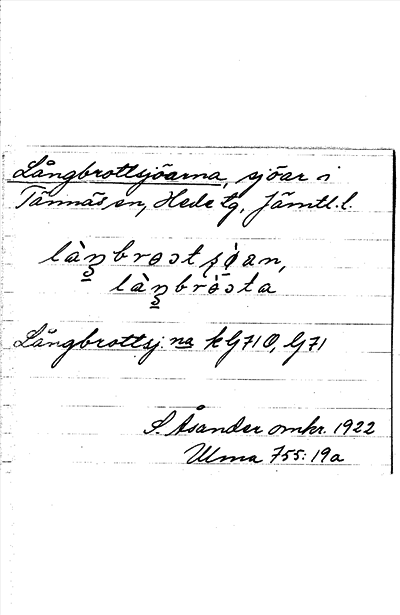 Långbrottsjöarna, sjöar i
Tännäs sn, Hede tg, Jämtl. l.
Långbrottsj:na kG71O, G71
S. Åsander omkr. 1922
Ulma 755:19a